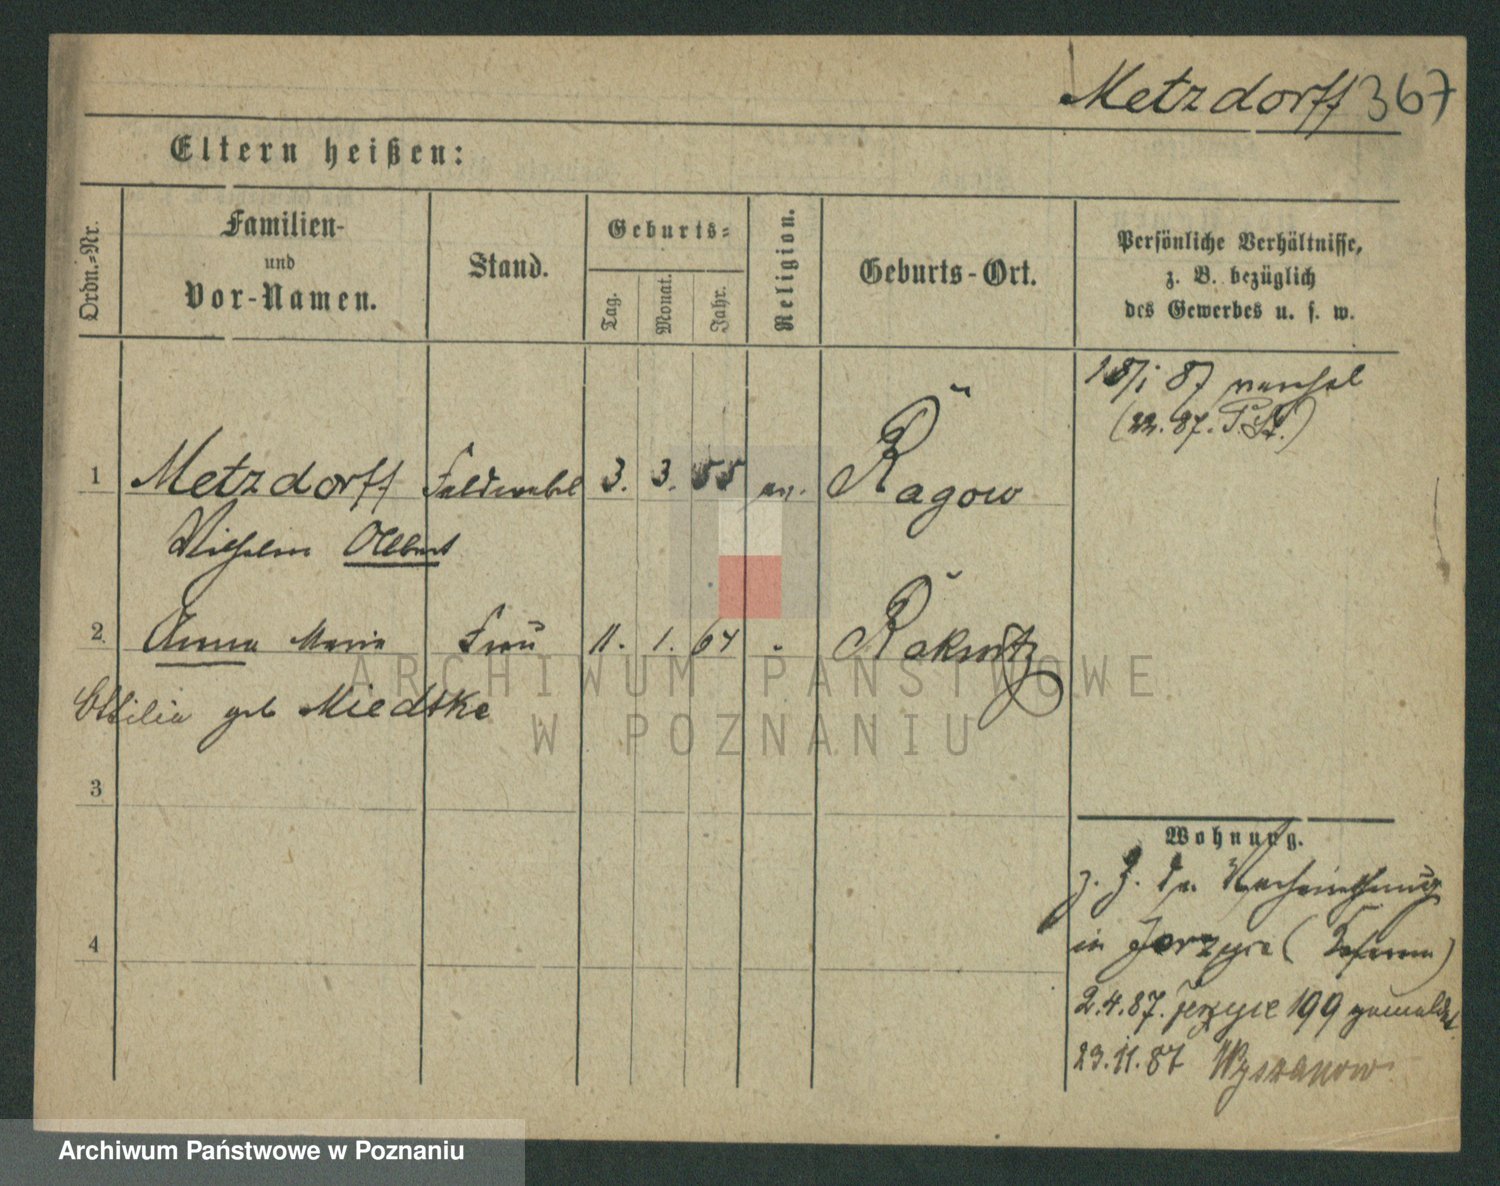 Metzdorff 367
Eltern heißen:
Ordn.-Nr.
Familien-
und
Vor-Namen.
Stand.
Geburts-
Tag.
Monat.
Jahr.
Religion.
Geburts-Ort.
Persönliche Verhältnisse,
z. B. bezüglich
des Gewerbes u. s. w.
87
(22. 87. P. St.)
1 Metzdorff Feldwebel 3. 3. 55 ev. Ragow
Wilhelm Albert
2 Anna Maria Frau 11. 1. 64 " Rakwitz
Ottilie geb Miedtke
3
4
Wohnung.
z. Z.
in Jerzyce
2.4.87. Jerzyce 199 gemeldet
23.11.87 Wyszanow
ARCHIWUM PAŃSTWOWE
W POZNANIU
Archiwum Państwowe w Poznaniu